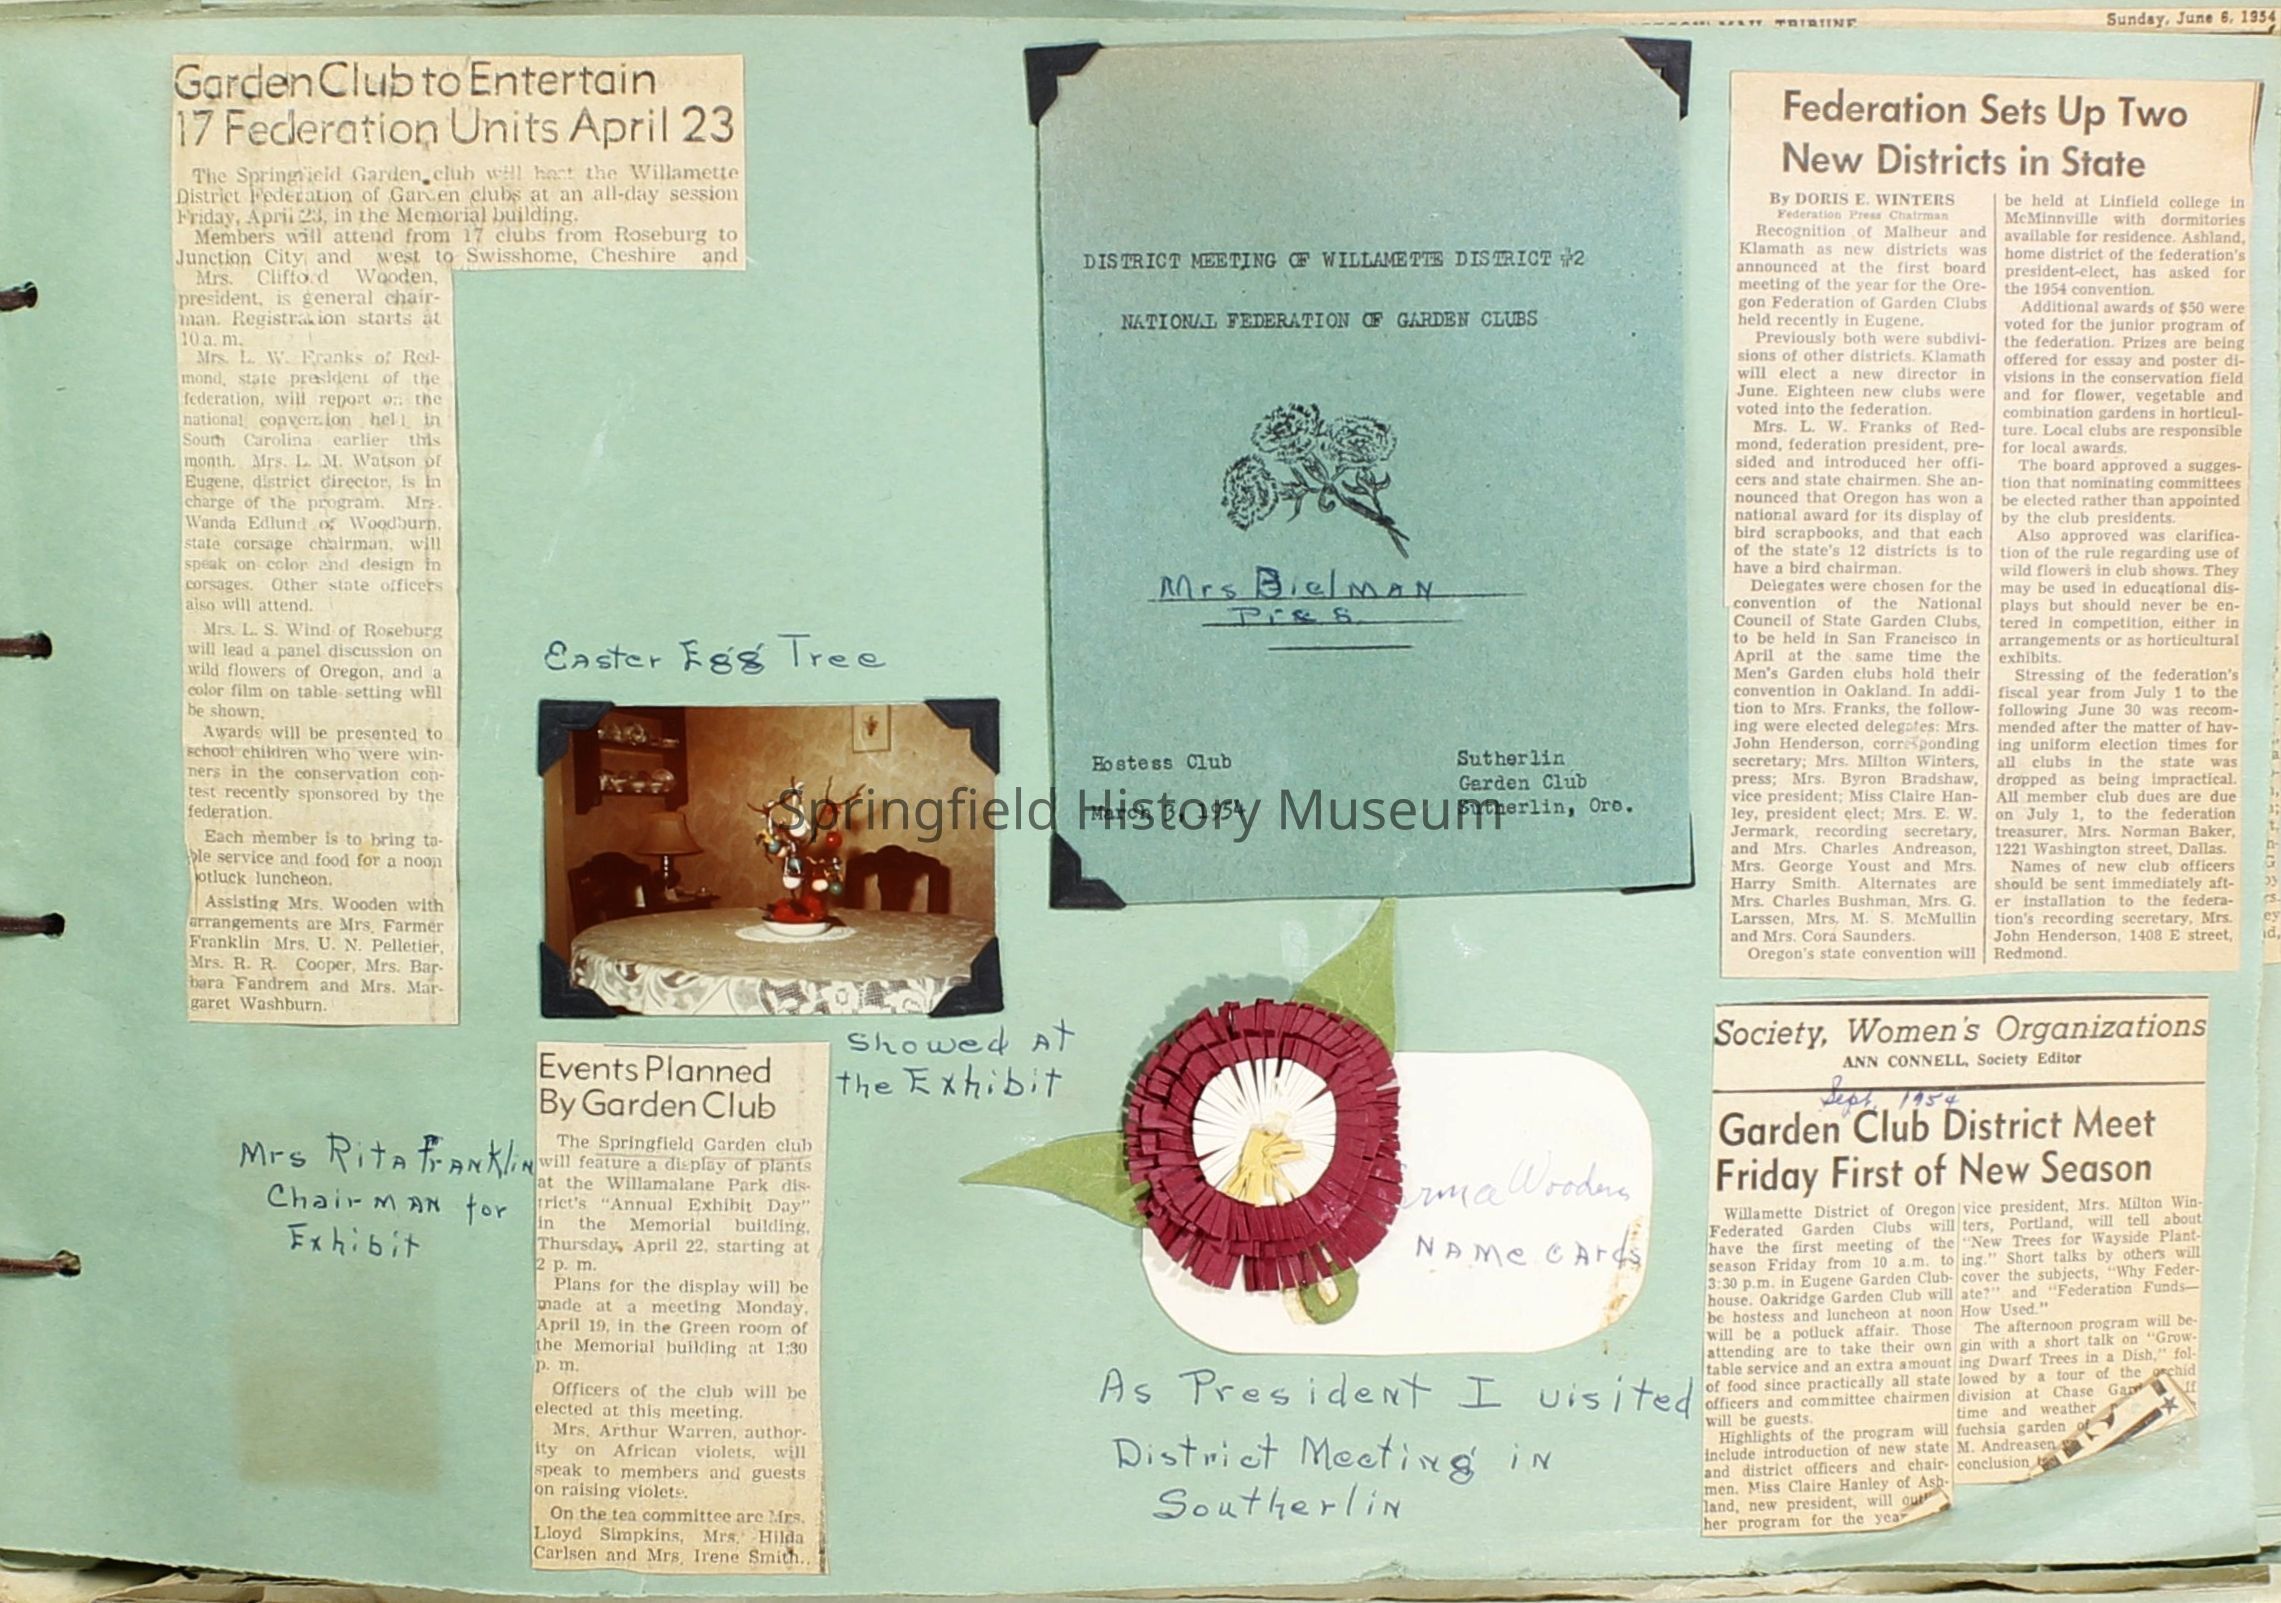 MAIL TRIBUNE
Sunday, June 6, 1954
Garden Club to Entertain
17 Federation Units April 23
The Springfield Garden club will host the Willamette
District Federation of Garden clubs at an all-day session
Friday, April 23, in the Memorial building.
Members will attend from 17 clubs from Roseburg to
Junction City and west to Swisshome, Cheshire and
Mrs. Clifford Wooden,
president, is general chair-
man. Registration starts at
10 a. m.
Mrs. L. W. Franks of Red-
mond, state president of the
federation, will report on the
national convention held in
South Carolina earlier this
month. Mrs. L. M. Watson of
Eugene, district director, is in
charge of the program. Mrs.
Wanda Edlund of Woodburn,
state corsage chairman, will
speak on color and design in
corsages. Other state officers
also will attend.
Mrs. L. S. Wind of Roseburg
will lead a panel discussion on
wild flowers of Oregon, and a
color film on table setting will
be shown.
Awards will be presented to
school children who were win-
ners in the conservation con-
test recently sponsored by the
federation.
Each member is to bring ta-
ble service and food for a noon
potluck luncheon.
Assisting Mrs. Wooden with
arrangements are Mrs. Farmer
Franklin Mrs. U. N. Pelletier,
Mrs. R. R. Cooper, Mrs. Bar-
bara Fandrem and Mrs. Mar-
garet Washburn.
Easter Egg Tree
Showed At
the Exhibit
Mrs Rita Franklin
Chairman for
Exhibit
Events Planned
By Garden Club
The Springfield Garden club
will feature a display of plants
at the Willamalane Park dis-
trict's "Annual Exhibit Day"
in the Memorial building,
Thursday, April 22, starting at
2 p. m.
Plans for the display will be
made at a meeting Monday,
April 19, in the Green room of
the Memorial building at 1:30
p. m.
Officers of the club will be
elected at this meeting.
Mrs. Arthur Warren, author-
ity on African violets, will
speak to members and guests
on raising violets.
On the tea committee are Mrs.
Lloyd Simpkins, Mrs. Hilda
Carlsen and Mrs. Irene Smith.
DISTRICT MEETING OF WILLAMETTE DISTRICT #2
NATIONAL FEDERATION OF GARDEN CLUBS
Mrs Bielman
Pres.
Hostess Club
March 3, 1954
Sutherlin
Garden Club
Sutherlin, Ore.
Springfield History Museum
Wooden
NAME CArds
As President I visited
District Meeting in
Southerlin
Federation Sets Up Two
New Districts in State
By DORIS E. WINTERS
Federation Press Chairman
Recognition of Malheur and
Klamath as new districts was
announced at the first board
meeting of the year for the Ore-
gon Federation of Garden Clubs
held recently in Eugene.
Previously both were subdivi-
sions of other districts. Klamath
will elect a new director in
June. Eighteen new clubs were
voted into the federation.
Mrs. L. W. Franks of Red-
mond, federation president, pre-
sided and introduced her offi-
cers and state chairmen. She an-
nounced that Oregon has won a
national award for its display of
bird scrapbooks, and that each
of the state's 12 districts is to
have a bird chairman.
Delegates were chosen for the
convention of the National
Council of State Garden Clubs,
to be held in San Francisco in
April at the same time the
Men's Garden clubs hold their
convention in Oakland. In addi-
tion to Mrs. Franks, the follow-
ing were elected delegates: Mrs.
John Henderson, corresponding
secretary; Mrs. Milton Winters,
press; Mrs. Byron Bradshaw,
vice president; Miss Claire Han-
ley, president elect; Mrs. E. W.
Jermark, recording secretary,
and Mrs. Charles Andreason,
Mrs. George Youst and Mrs.
Harry Smith. Alternates are
Mrs. Charles Bushman, Mrs. G.
Larssen, Mrs. M. S. McMullin
and Mrs. Cora Saunders.
Oregon's state convention will
be held at Linfield college in
McMinnville with dormitories
available for residence. Ashland,
home district of the federation's
president-elect, has asked for
the 1954 convention.
Additional awards of $50 were
voted for the junior program of
the federation. Prizes are being
offered for essay and poster di-
visions in the conservation field
and for flower, vegetable and
combination gardens in horticul-
ture. Local clubs are responsible
for local awards.
The board approved a sugges-
tion that nominating committees
be elected rather than appointed
by the club presidents.
Also approved was clarifica-
tion of the rule regarding use of
wild flowers in club shows. They
may be used in educational dis-
plays but should never be en-
tered in competition, either in
arrangements or as horticultural
exhibits.
Stressing of the federation's
fiscal year from July 1 to the
following June 30 was recom-
mended after the matter of hav-
ing uniform election times for
all clubs in the state was
dropped as being impractical.
All member club dues are due
on July 1, to the federation
treasurer, Mrs. Norman Baker,
1221 Washington street, Dallas.
Names of new club officers
should be sent immediately aft-
er installation to the federa-
tion's recording secretary, Mrs.
John Henderson, 1408 E street,
Redmond.
Society, Women's Organizations
ANN CONNELL, Society Editor
Sept. 1954
Garden Club District Meet
Friday First of New Season
Willamette District of Oregon
Federated Garden Clubs will
have the first meeting of the
season Friday from 10 a.m. to
3:30 p.m. in Eugene Garden Club-
house. Oakridge Garden Club will
be hostess and luncheon at noon
will be a potluck affair. Those
attending are to take their own
table service and an extra amount
of food since practically all state
officers and committee chairmen
will be guests.
Highlights of the program will
include introduction of new state
and district officers and chair-
men. Miss Claire Hanley of Ash-
land, new president, will
her program for the year
vice president, Mrs. Milton Win-
ters, Portland, will tell about
"New Trees for Wayside Plant-
ing." Short talks by others will
cover the subjects, "Why Feder-
ate?" and "Federation Funds—
How Used."
The afternoon program will be-
gin with a short talk on "Grow-
ing Dwarf Trees in a Dish," fol-
lowed by a tour of the orchid
division at Chase If
time and weather
fuchsia garden of
M. Andreasen
conclusion